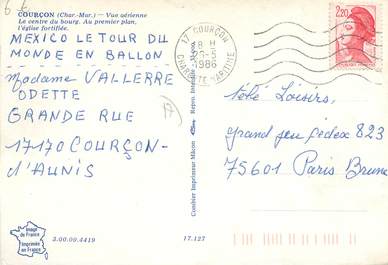 COURÇON (Char.-Mar.) — Vue aérienne
Le centre du bourg. Au premier plan,
l'église fortifiée.
MEXICO LE TOUR DU
MONDE EN BALLON
Madame VALLERRE
ODETTE
GRANDE RUE
17170 COURÇON-
d'AUNIS
Image
de France
Imprimée
en France
3.00.99.4419
17.127
Combier Imprimeur Mâcon
17 COURÇON
8 H
1986
CHARENTE MARITIME
2,20
télé Loisirs,
grand jeu cedex 823
75601 Paris Brune